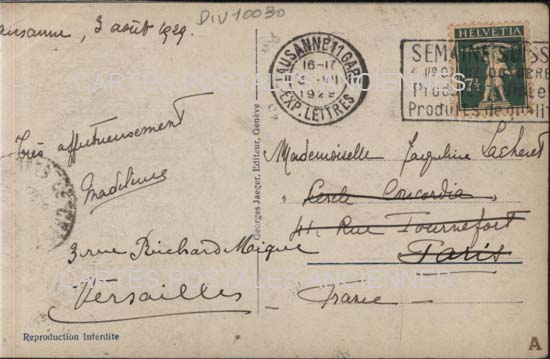 Lausanne, 3 août 1929.
DIV10030
LAUSANNE 1 GARE
16-17
1929
EXP. LETTRES
HELVETIA
7½
SEMAINE SUISS
Produits
Produits de
Très affectueusement
Madeleine
Georges Jaeger, Editeur, Genève
Mademoiselle Jacqueline
Cercle Concordia
41 Rue Tournefort
Paris
France
3 rue Richard Mique
Versailles
Reproduction Interdite
A
CARTES POSTALES ANCIENNES
CARTES POSTALES ANCIENNES